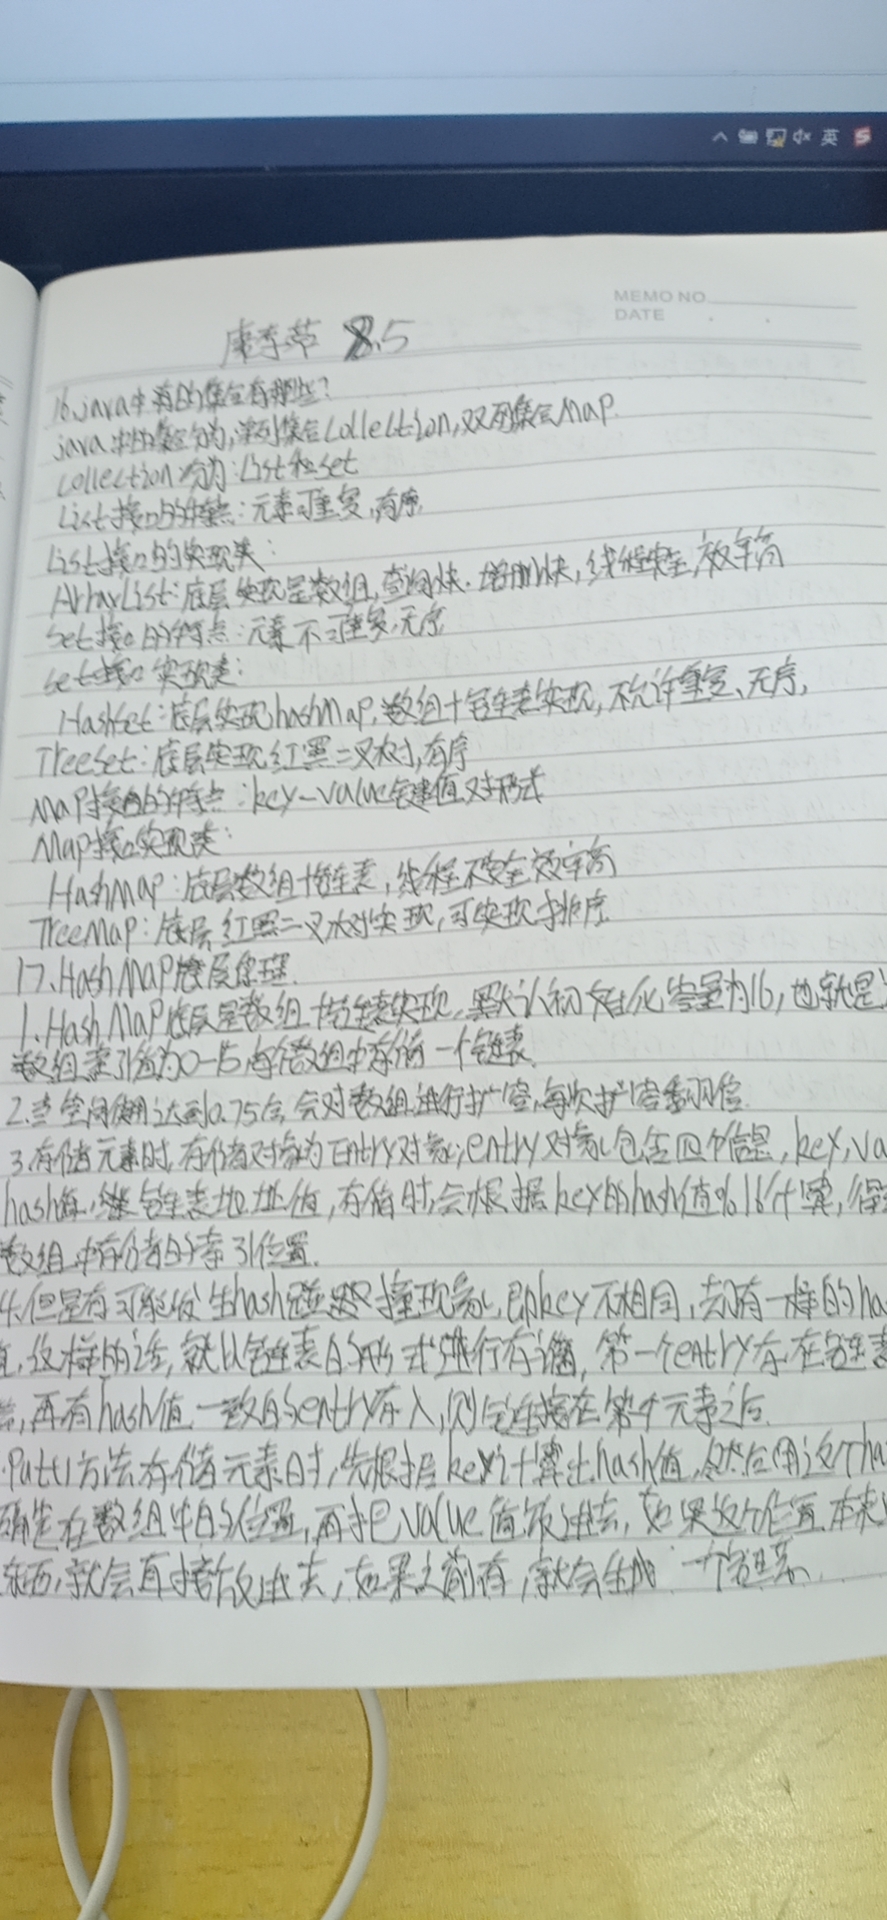 英
MEMO NO
DATE
康季芾 8.5
16.java中有的集合有哪些?
java中的集合分为,单列集合Collection,双列集合Map.
collection分为:List和set
List接口的特点:元素可重复,有序
List接口的实现类:
ArrayList:底层实现是数组,查询快.增删快,线程安全,效率高
set接口的特点:元素不可重复.无序
set接口实现类:
HashSet:底层实现hashMap,数组+链表实现,不允许重复、无序,
TreeSet:底层实现红黑二叉树,有序
Map接口的特点:key-value键值对形式
Map接口实现类:
HashMap:底层数组+链表,线程不安全效率高
TreeMap:底层红黑二叉树实现,可实现排序
17.HashMAP底层原理.
1.HashMAP底层是数组+链表实现,默认初始化容量为16,也就是
数组索引值为0-15,每个数组中存储一个链表.
2.当空间使用达到0.75会,会对数组进行扩容,每次扩容翻倍
3.存储元素时,存储对象为Entry对象;entry对象包含四个信息,key,va
hash值,链表地址值,存储时,会根据key的hash值%16计算,得
数组中存储的索引位置.
4.但是有可能发生hash碰撞现象,即key不相同,却有一样的ha
这样的话,就以链表的形式进行存储,第一个entry存在链表
再有hash值一致的entry存入,则链接在第个元素之后.
.Put()方法存储元素时,先根据key计算出hash值,然后用这个ha
确定在数组中的位置,再把value值放进去,如果这个位置本来
东西,就会直接放进去,如果之前有,就会生成一个链表.